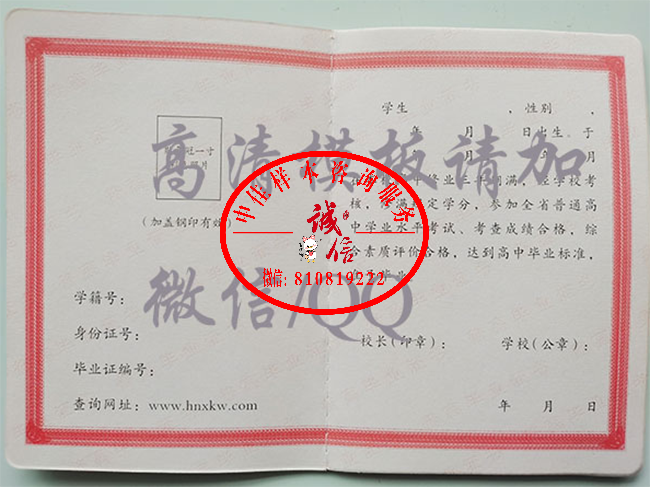 免冠一寸
照片
(加盖钢印有效)
学籍号：
身份证号：
毕业证编号：
查询网址：www.hnxkw.com
学生　　　，性别　，
年　月　日出生，于
年　月
修业三年期满，经学校考
核，修满规定学分，参加全省普通高
中学业水平考试、考查成绩合格，综
合素质评价合格，达到高中毕业标准，
毕业
校长(印章)：　学校(公章)：
年　月　日
高清模板请加
微信/QQ
中佳样本咨询服务
诚信
微信：810819222